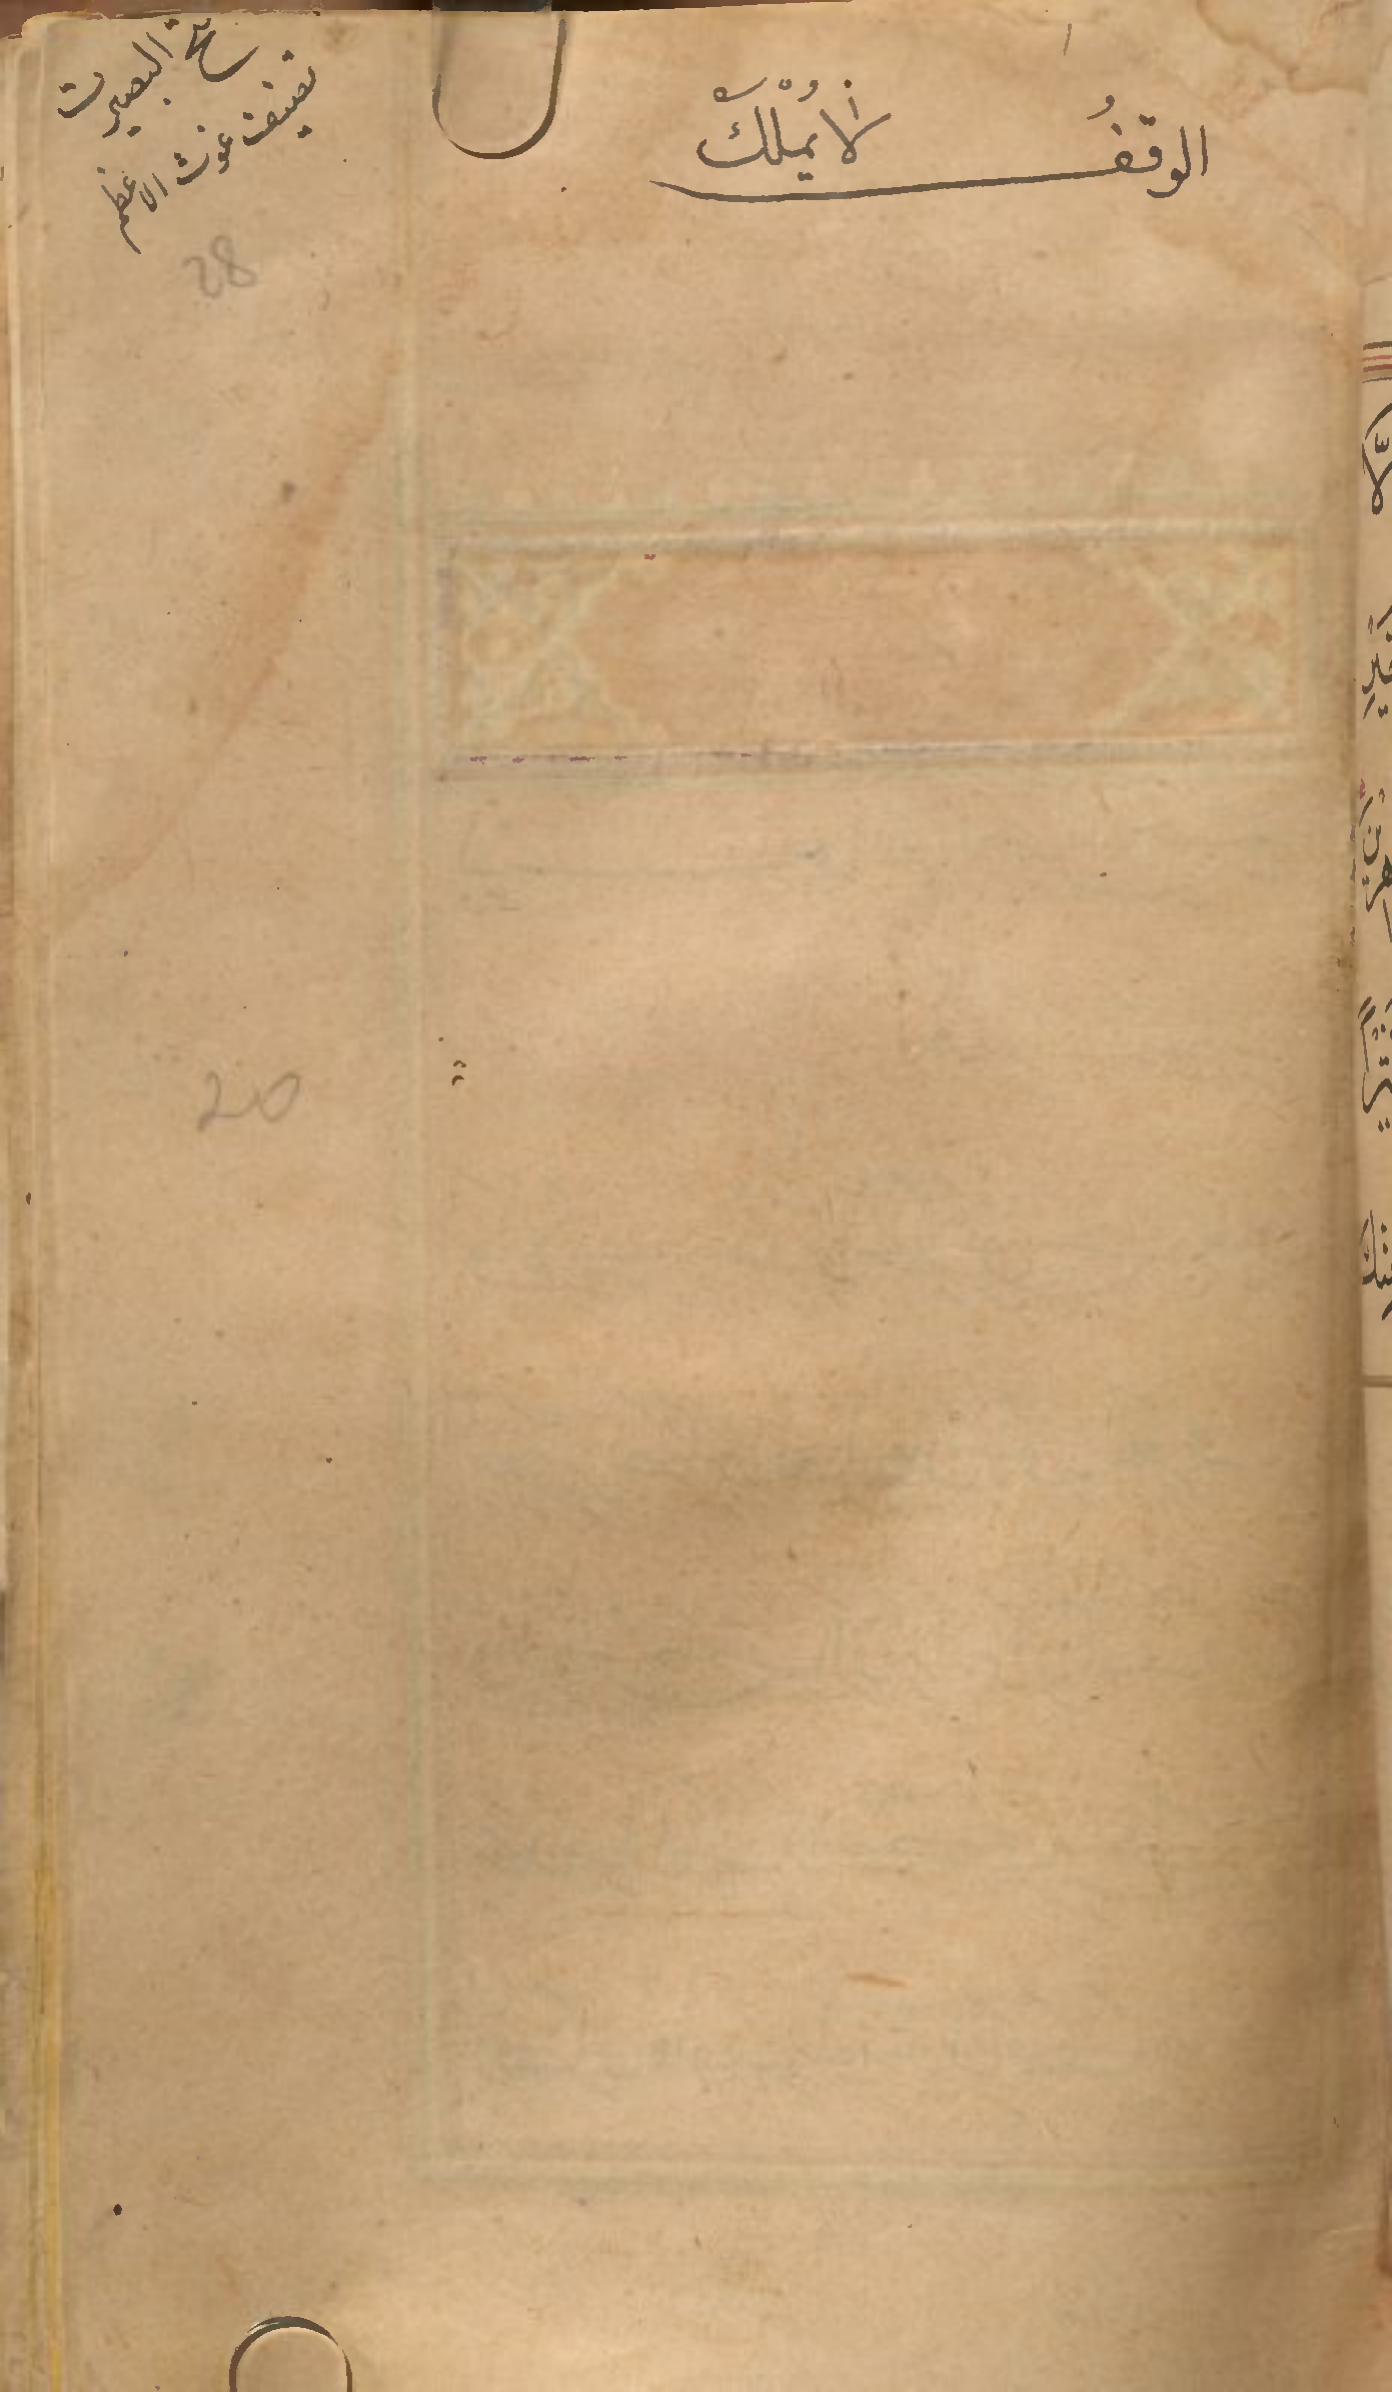 الوقفُ لا يُمْلَكُ
البصيرت
تصنيف غوث الاعظم
28
20